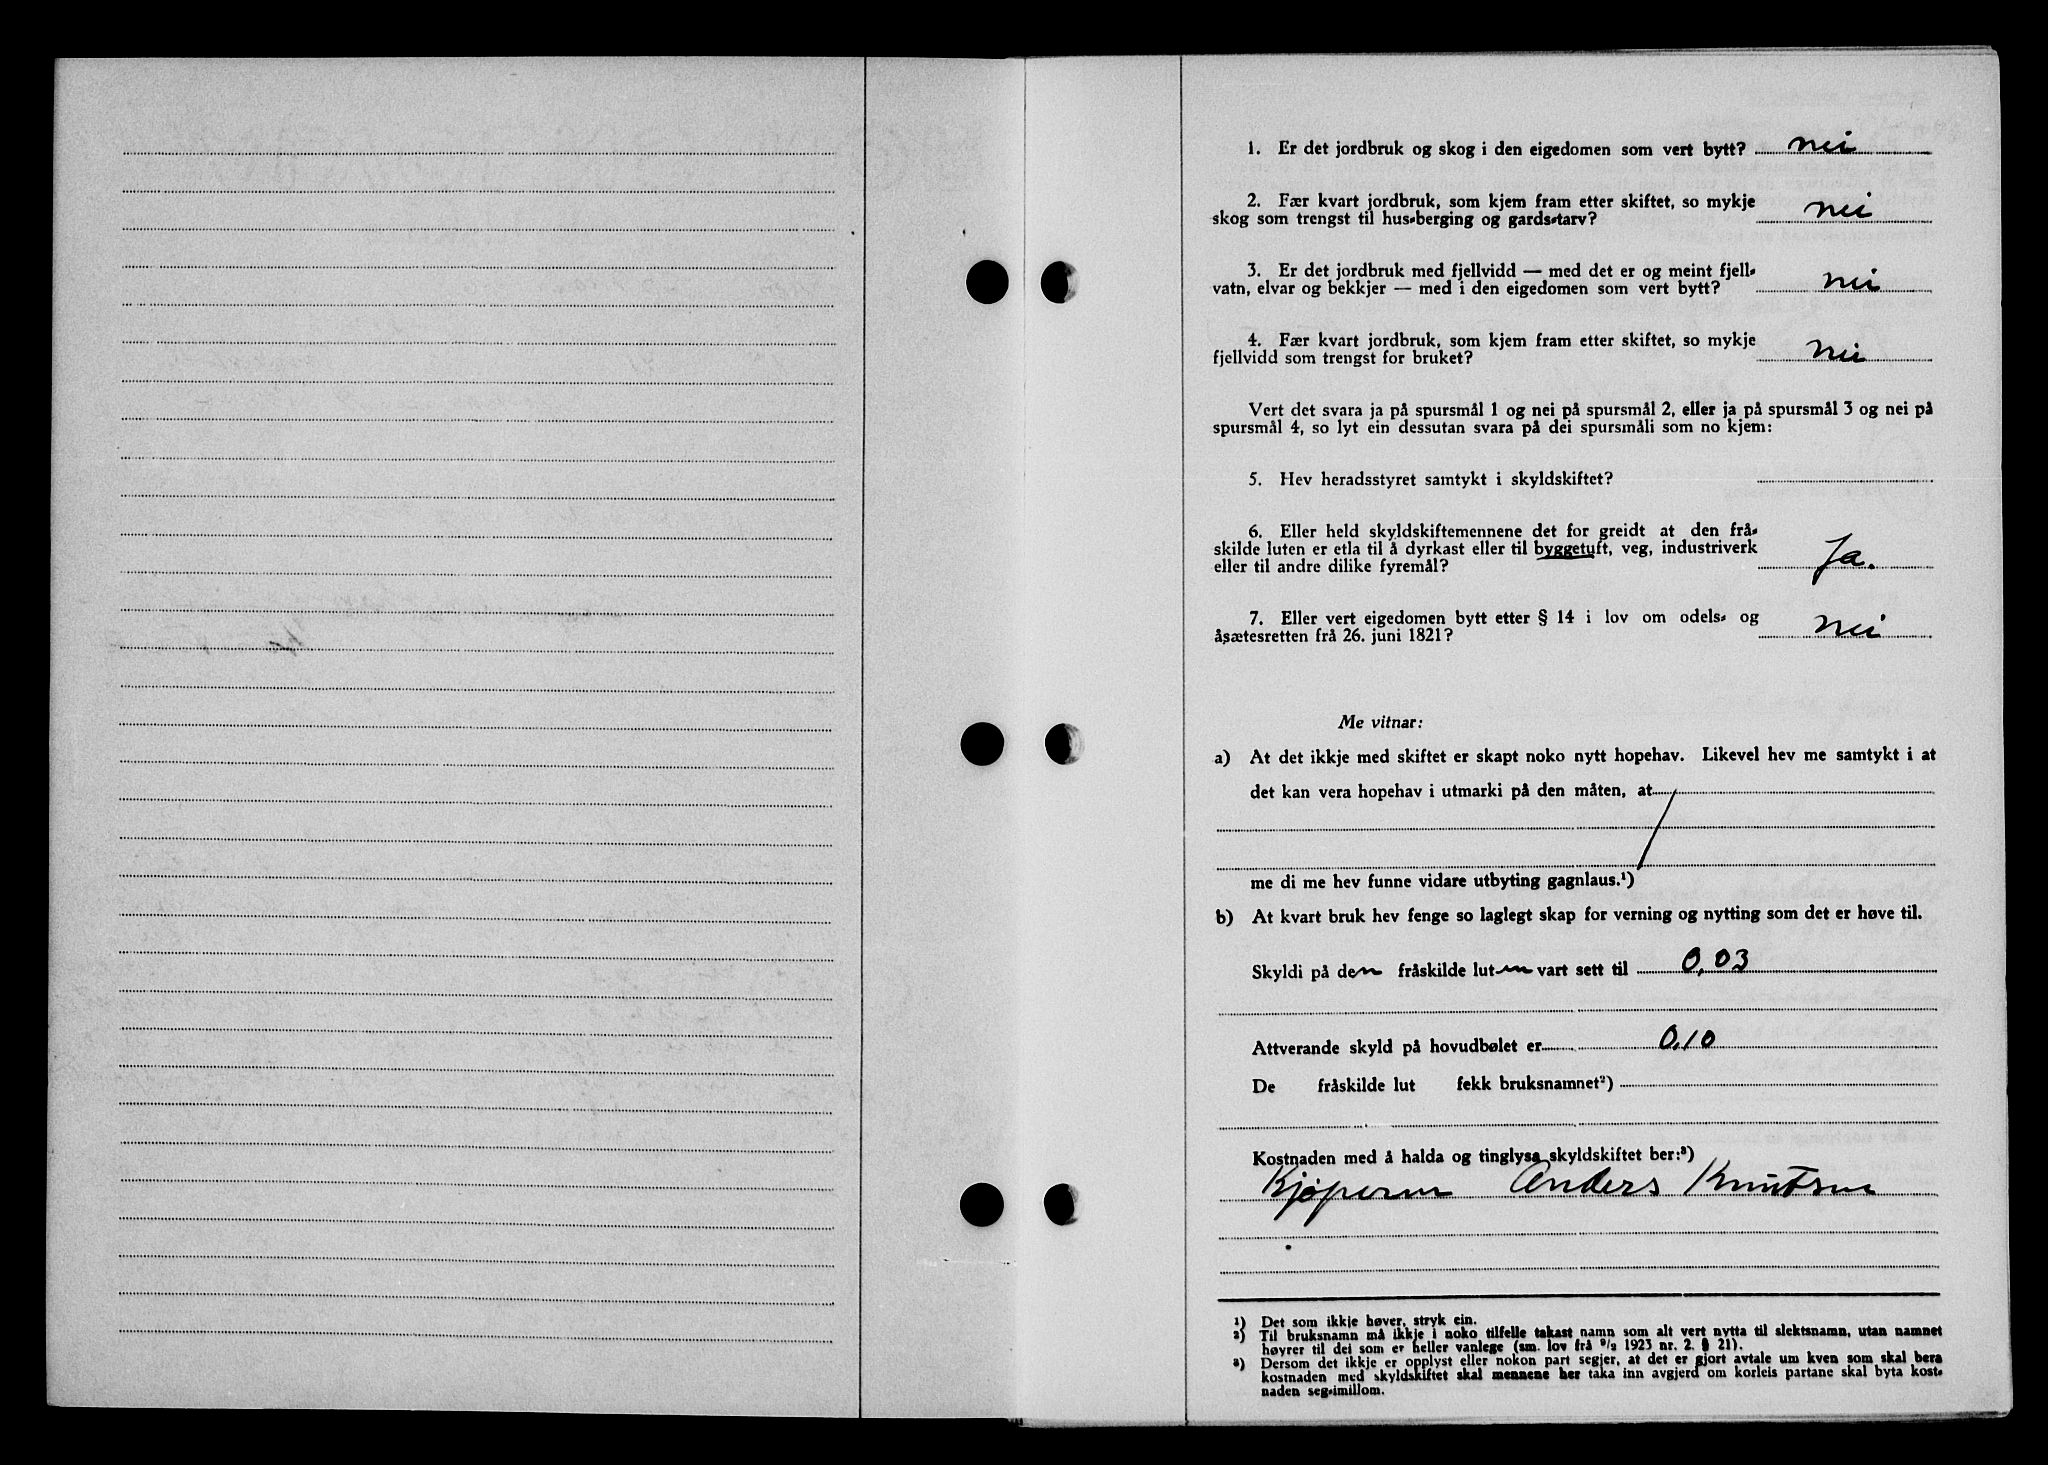 1. Er det jordbruk og skog i den eigedomen som vert bytt? nei
2. Fær kvart jordbruk, som kjem fram etter skiftet, so mykje
skog som trengst til hus-berging og gards-tarv? nei
3. Er det jordbruk med fjellvidd — med det er og meint fjell-
vatn, elvar og bekkjer — med i den eigedomen som vert bytt? nei
4. Fær kvart jordbruk, som kjem fram etter skiftet, so mykje
fjellvidd som trengst for bruket? nei
Vert det svara ja på spursmål 1 og nei på spursmål 2, eller ja på spursmål 3 og nei på
spursmål 4, so lyt ein dessutan svara på dei spursmåli som no kjem:
5. Hev heradsstyret samtykt i skyldskiftet?
6. Eller held skyldskiftemennene det for greidt at den frå-
skilde luten er etla til å dyrkast eller til byggetuft, veg, industriverk
eller til andre dilike fyremål? Ja.
7. Eller vert eigedomen bytt etter § 14 i lov om odels- og
åsætesretten frå 26. juni 1821? nei
Me vitnar:
a) At det ikkje med skiftet er skapt noko nytt hopehav. Likevel hev me samtykt i at
det kan vera hopehav i utmarki på den måten, at
me di me hev funne vidare utbyting gagnlaus.¹)
b) At kvart bruk hev fenge so laglegt skap for verning og nytting som det er høve til.
Skyldi på den fråskilde luten vart sett til 0,03
Attverande skyld på hovudbølet er 0,10
De fråskilde lut fekk bruksnamnet²)
Kostnaden med å halda og tinglysa skyldskiftet ber:³)
Kjøperen Anders Knutsen
¹) Det som ikkje høver, stryk ein.
²) Til bruksnamn må ikkje i noko tilfelle takast namn som alt vert nytta til slektsnamn, utan namnet
høyrer til dei som er heller vanlege (sm. lov frå ⁹/₂ 1923 nr. 2. § 21).
³) Dersom det ikkje er opplyst eller nokon part segjer, at det er gjort avtale um kven som skal bera
kostnaden med skyldskiftet skal mennene her taka inn avgjerd om korleis partane skal byta kost-
naden seg-imillom.